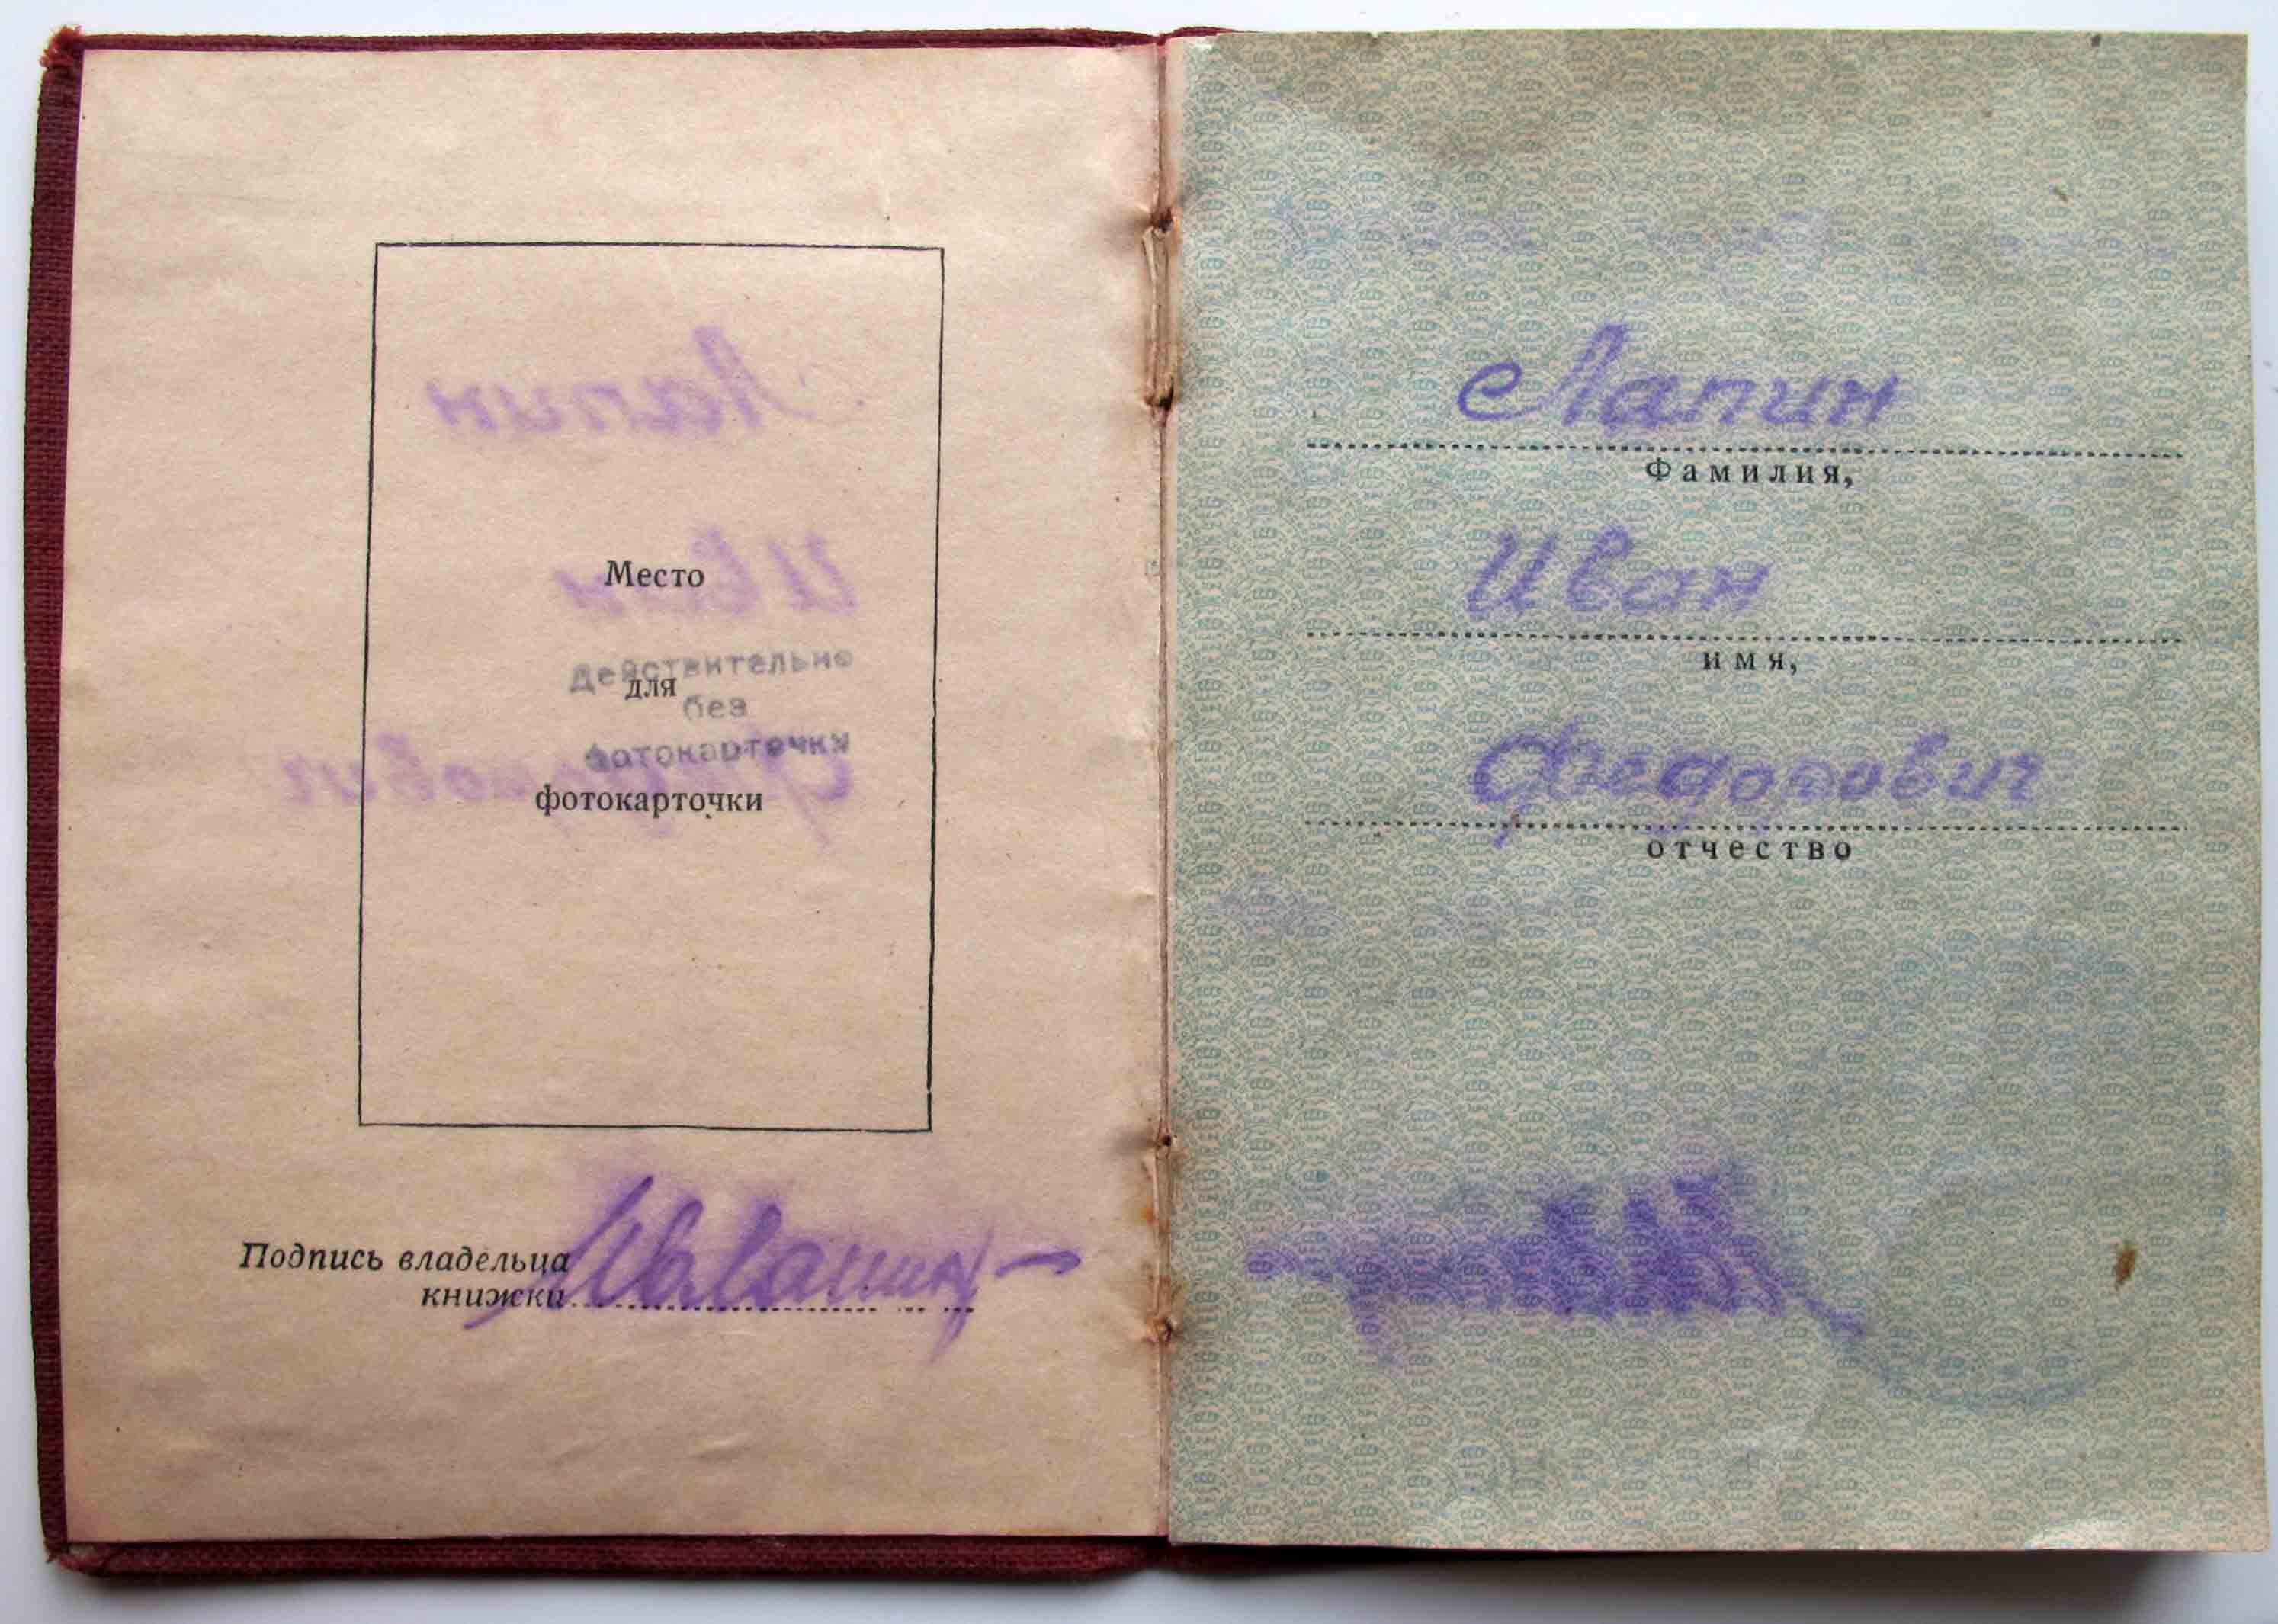 Место
действительно
для
без
фотокарточки
фотокарточки
Подпись владельца
книжки
Лапин
Фамилия,
Иван
имя,
Федорович
отчество